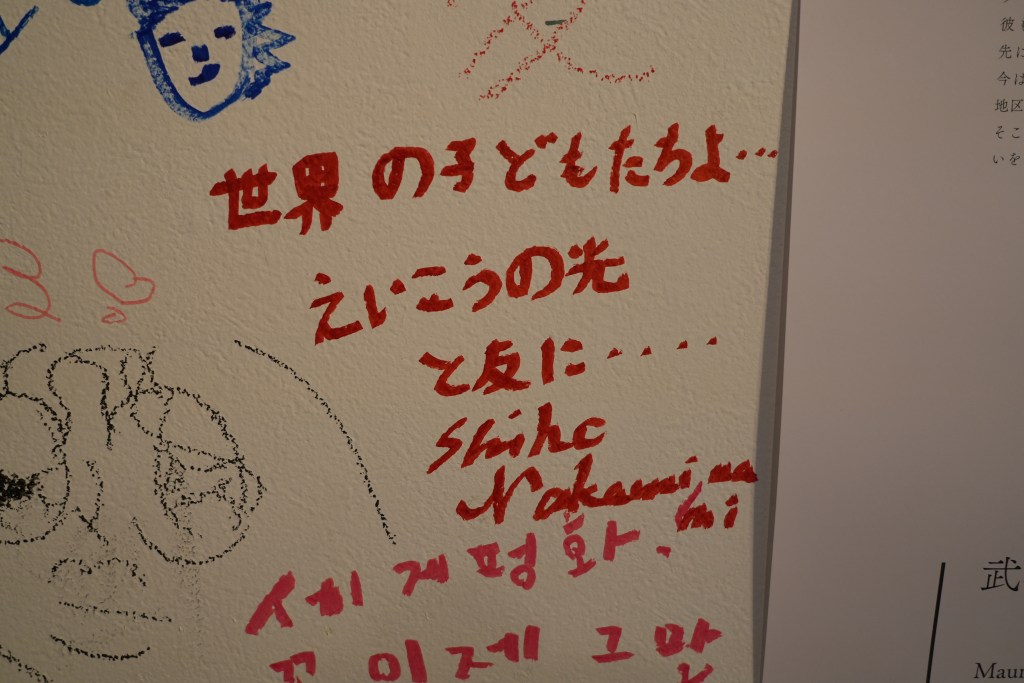 世界の子どもたちよ…
えいこうの光
と友に・・・・
Shiho
Nakamina
mi
세계평화.
이제 그만
彼も
先に
今は
地区
そこ
いを
武
Maur